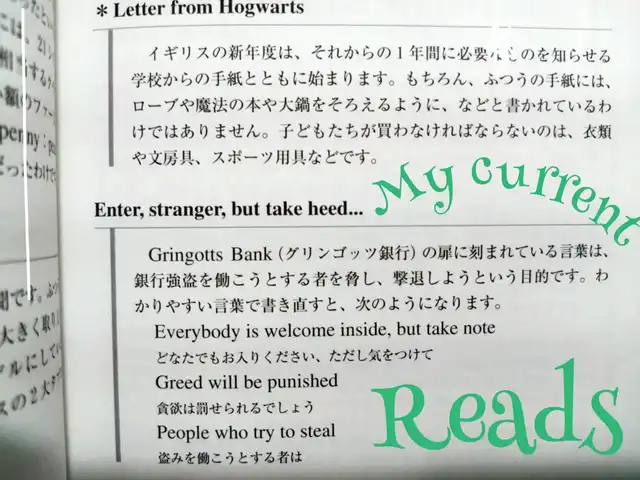 * Letter from Hogwarts
イギリスの新年度は、それからの1年間に必要なものを知らせる
学校からの手紙とともに始まります。もちろん、ふつうの手紙には、
ローブや魔法の本や大鍋をそろえるように、などと書かれているわ
けではありません。子どもたちが買わなければならないのは、衣類
や文房具、スポーツ用具などです。
My current
Enter, stranger, but take heed...
Gringotts Bank(グリンゴッツ銀行)の扉に刻まれている言葉は、
銀行強盗を働こうとする者を脅し、撃退しようという目的です。わ
かりやすい言葉で書き直すと、次のようになります。
Everybody is welcome inside, but take note
どなたでもお入りください、ただし気をつけて
Greed will be punished
貪欲は罰せられるでしょう
Reads
People who try to steal
盗みを働こうとする者は